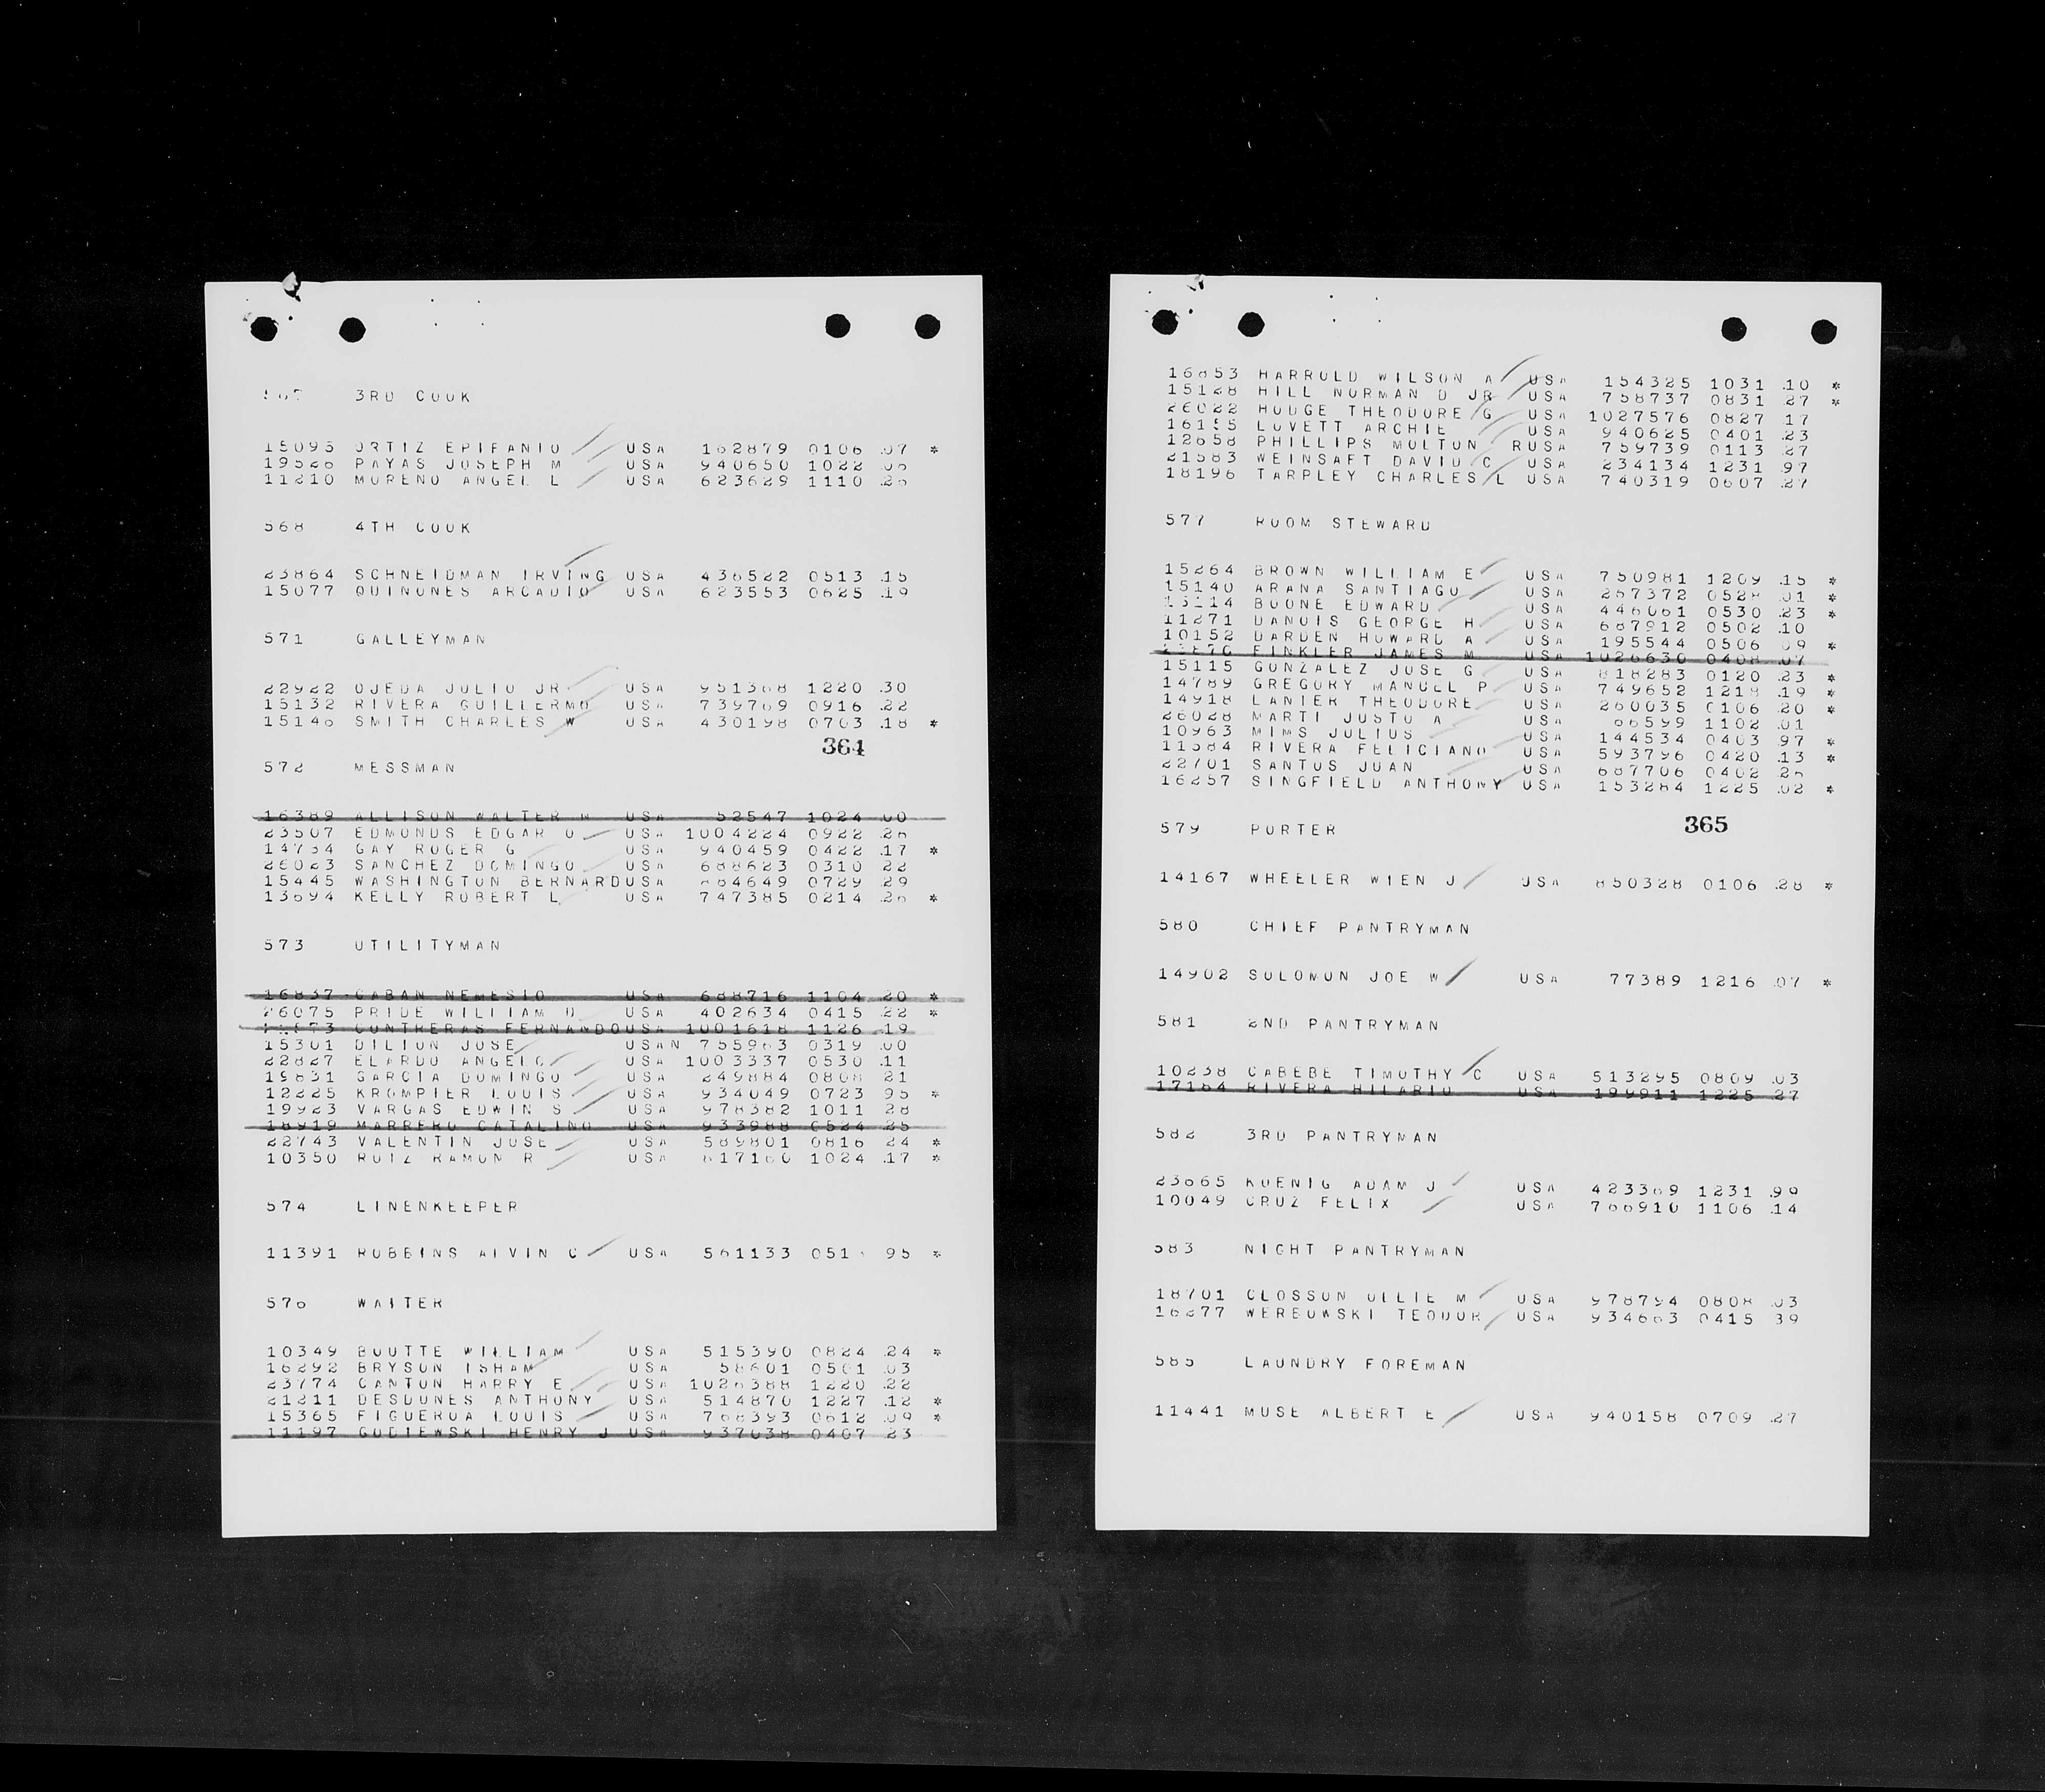 567 3RD COOK
15095 ORTIZ EPIFANIO USA 162879 0106 .07 *
19526 PAYAS JOSEPH M USA 940650 1022 .06
11210 MORENO ANGEL L USA 623629 1110 .26
568 4TH COOK
23864 SCHNEIDMAN IRVING USA 436522 0513 .15
15077 QUINONES ARCADIO USA 623553 0625 .19
571 GALLEYMAN
22922 OJEDA JULIO JR USA 951368 1220 .30
15132 RIVERA GUILLERMO USA 739769 0916 .22
15146 SMITH CHARLES W USA 430198 0703 .18 *
364
572 MESSMAN
16389 ALLISON WALTER W USA 52547 1024 .00
23507 EDMONDS EDGAR O USA 1004224 0922 .26
14734 GAY ROGER G USA 940459 0422 .17 *
26023 SANCHEZ DOMINGO USA 688623 0310 22
15445 WASHINGTON BERNARDUSA 664649 0729 .29
13694 KELLY ROBERT L USA 747385 0214 .26 *
573 UTILITYMAN
16837 CABAN NEMESIO USA 688716 1104 .20 *
26075 PRIDE WILLIAM D USA 402634 0415 .22 *
CONTRERAS FERNANDOUSA 1001618 1126 .19
15301 DILION JOSE USAN 755963 0319 .00
22827 ELARDO ANGELO USA 1003337 0530 .11
19831 GARCIA DOMINGO USA 249884 0808 21
12225 KROMPIER LOUIS USA 934049 0723 95 *
19923 VARGAS EDWIN S USA 978382 1011 28
18919 MARRERO CATALINO USA 933988 0524 .25
22743 VALENTIN JOSE USA 589801 0816 24 *
10350 RUIZ RAMON R USA 817160 1024 .17 *
574 LINENKEEPER
11391 ROBBINS ALVIN C USA 561133 051 95 *
576 WAITER
10349 BOUTTE WILLIAM USA 515390 0824 .24 *
16292 BRYSON ISHAM USA 58601 0501 .03
23774 CANTON HARRY E USA 1026388 1220 .22
21211 DESDUNES ANTHONY USA 514870 1227 .12 *
15365 FIGUEROA LOUIS USA 768393 0612 .09 *
11197 GODIEWSKI HENRY J USA 937638 0407 .23
16853 HARROLD WILSON A USA 154325 1031 .10 *
15128 HILL NORMAN D JR USA 758737 0831 .27 *
26022 HODGE THEODORE G USA 1027576 0827 .17
16155 LOVETT ARCHIE USA 940625 0401 .23
12658 PHILLIPS MOLTON RUSA 759739 0113 .27
21583 WEINSAFT DAVID C USA 234134 1231 .97
18196 TARPLEY CHARLES L USA 740319 0607 .27
577 ROOM STEWARD
15264 BROWN WILLIAM E USA 750981 1209 .15 *
15140 ARANA SANTIAGO USA 267372 0528 .01 *
15114 BOONE EDWARD USA 446061 0530 .23 *
11271 DANOIS GEORGE H USA 687912 0502 .10
10152 DARDEN HOWARD A USA 195544 0506 .09 *
FINKLER JAMES M USA 1026630 0408 .07
15115 GONZALEZ JOSE G USA 818283 0120 .23 *
14789 GREGORY MANUEL P USA 749652 1218 .19 *
14918 LANIER THEODORE USA 260035 0106 .20 *
26028 MARTI JUSTO A USA 66599 1102 .01
10963 MIMS JULIUS USA 144534 0403 .97 *
11584 RIVERA FELICIANO USA 593796 0420 .13 *
22701 SANTOS JUAN USA 687706 0402 .26
16257 SINGFIELD ANTHONY USA 153284 1225 .02 *
579 PORTER 365
14167 WHEELER WIEN J USA 850328 0106 .28 *
580 CHIEF PANTRYMAN
14902 SOLOMON JOE W USA 77389 1216 .07 *
581 2ND PANTRYMAN
10238 CABEBE TIMOTHY C USA 513295 0809 .03
17164 RIVERA HILARIO USA 199911 1225 27
582 3RD PANTRYMAN
23665 KOENIG ADAM J USA 423369 1231 .99
10049 CRUZ FELIX USA 766910 1106 .14
583 NIGHT PANTRYMAN
18701 CLOSSON OLLIE M USA 978794 0808 .03
16277 WERBOWSKI TEODOR USA 934663 0415 39
585 LAUNDRY FOREMAN
11441 MUSE ALBERT E USA 940158 0709 .27